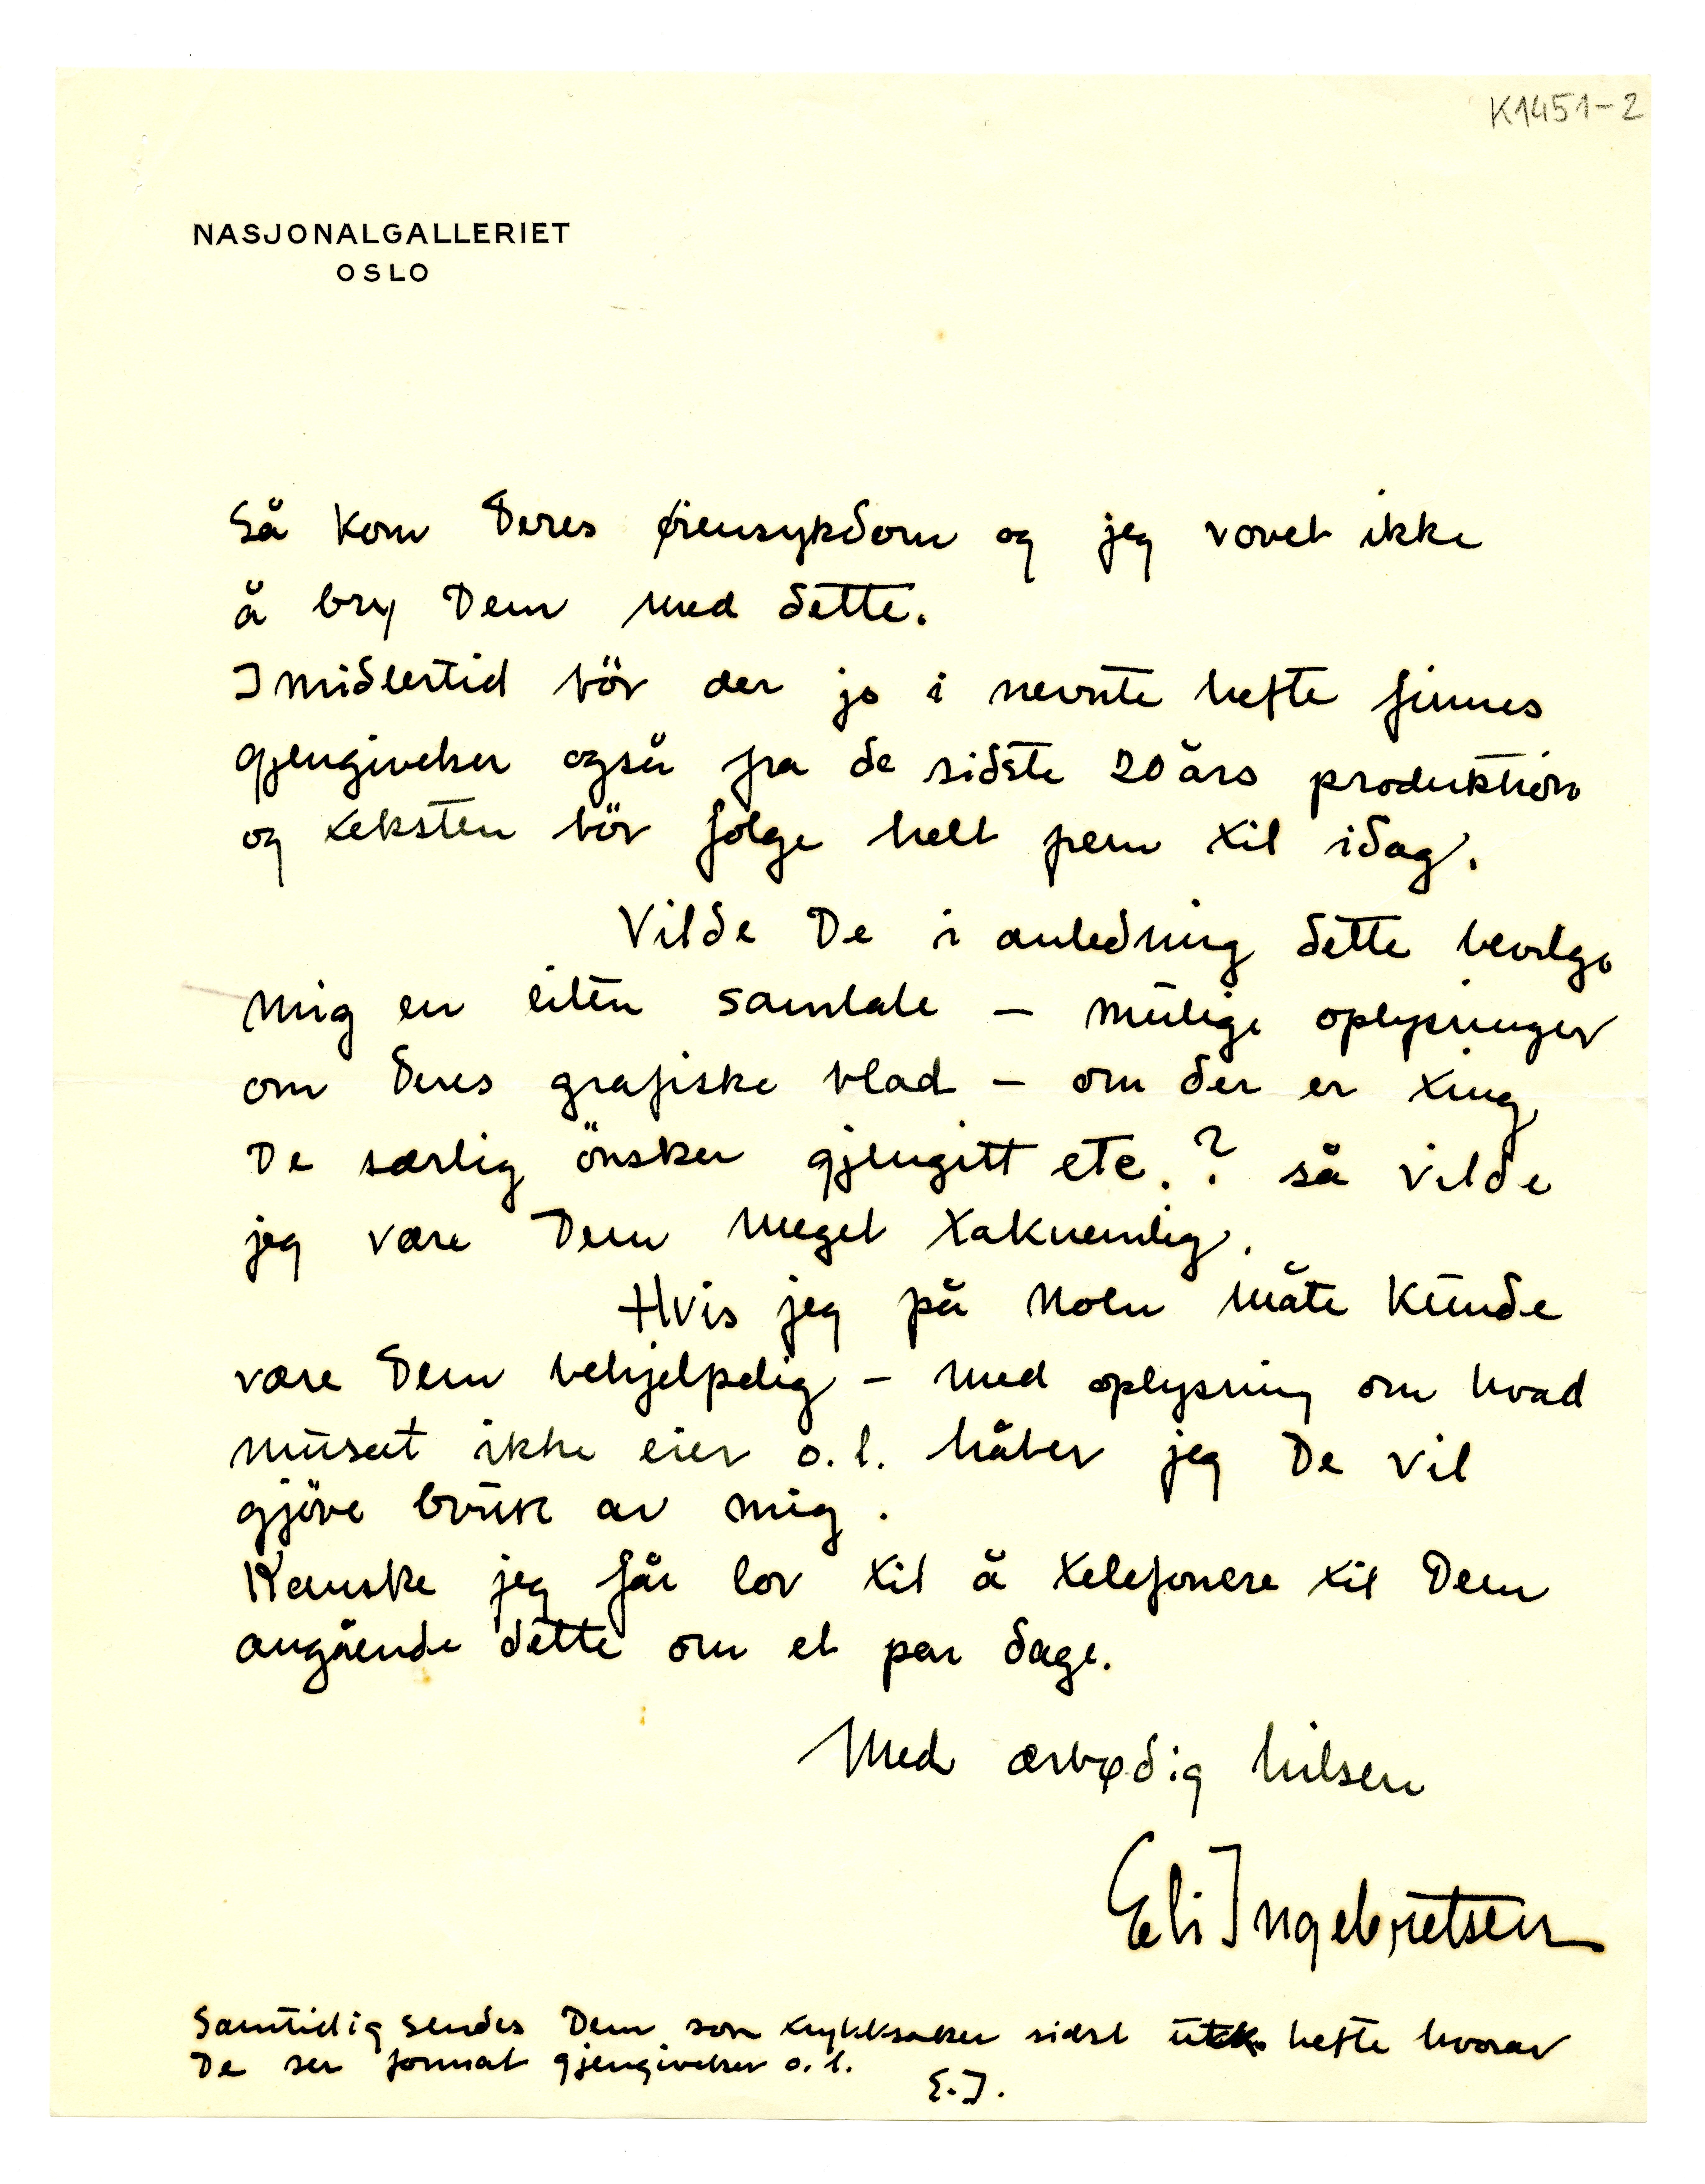 K1451-2
NASJONALGALLERIET
OSLO
Så kom Deres øiensykdom og jeg vovet ikke
å bry Dem med dette.
Imidlertid bör der jo i nevnte hefte finnes
gjengivelser også fra de sidste 20 års produktion
og teksten bör følge helt frem til idag.
Vilde De i anledning dette bevilge
mig en liten samtale – mulige oplysninger
om Deres grafiske blad – om der er ting
De særlig önsker gjengitt etc.? så vilde
jeg være Dem meget taknemlig.
Hvis jeg på noen måte kunde
være Dem behjelpelig – med oplysning om hvad
museet ikke eier o.l. håber jeg De vil
gjöre bruk av mig.
Kanske jeg får lov til å telefonere til Dem
angående dette om et par dage.
Med ærbødig hilsen
Eli Ingebretsen
Samtidig sendes Dem som trykksaker sidst utk. hefte hvorav
De ser format gjengivelser o.l.
E.I.